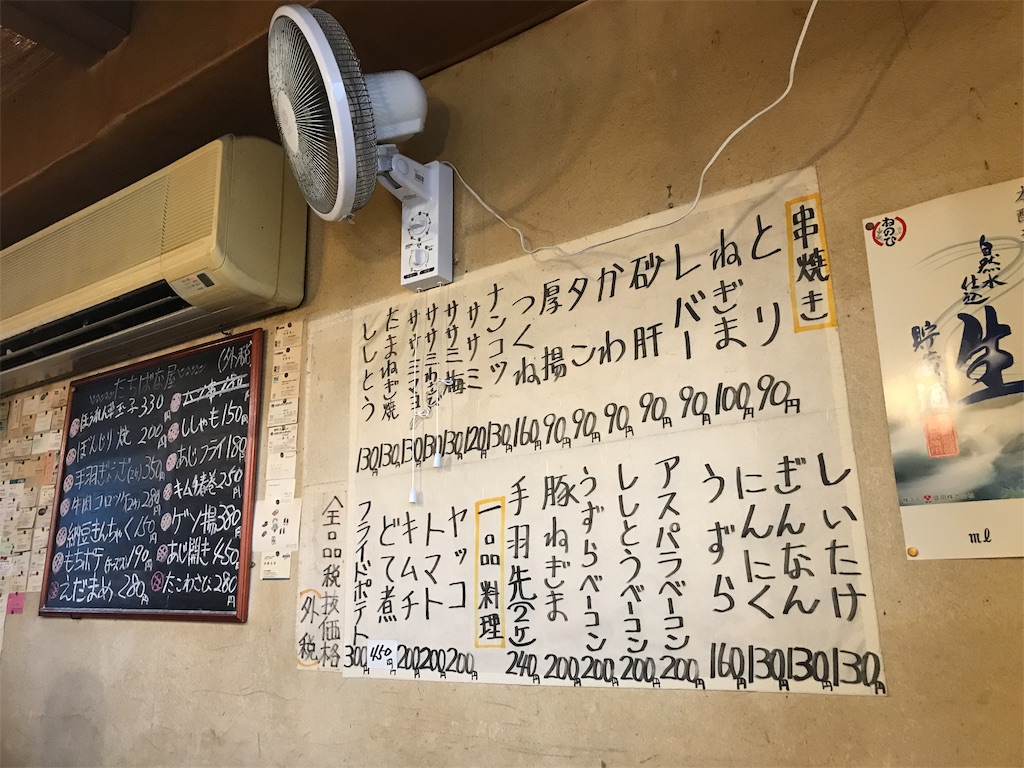 串焼き
とり 90円
ねぎま 100円
レバー 90円
砂肝 90円
かわ 90円
タこ 90円
厚揚 90円
つくね 160円
ナンコツ 130円
ササミ 120円
ササミ梅 130円
ササミわさび 130円
ササミマヨ 130円
たまねぎ焼 130円
ししとう 130円
しいたけ 130円
ぎんなん 130円
にんにく 130円
うずら 160円
アスパラベーコン 200円
ししとうベーコン 200円
うずらベーコン 200円
豚ねぎま 200円
手羽先(2ケ) 240円
一品料理
ヤッコ 200円
トマト 200円
キムチ 200円
どて煮 450円
フライドポテト 300円
全品税抜価格
外税
(外税)
ししゃも 150円
あじフライ 180円
キムチ春巻 250円
ゲソ揚 380円
あじ開き 450円
たこわさび 280円
ほうれん草玉子 330
ぼんじり焼 200円
手羽ぎょうざ(2ヶ) 350円
牛肉コロッケ(2ヶ) 280円
納豆きんちゃく 150円
もちポテ 190円
えだまめ 280円
ねのひ
自然水仕込
生
貯
ml